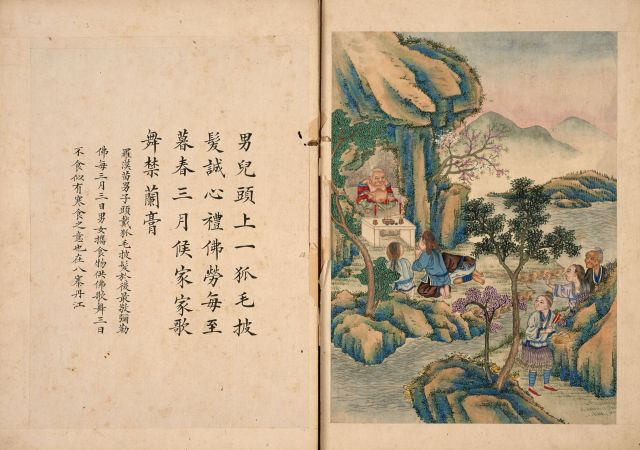 男兒頭上一狐毛披
髮誠心禮佛勞每至
暮春三月候家家歌
舞禁蘭膏
羅漢苗男子頭戴狐毛披髮於後最敬彌勒
佛每三月三日男女攜食物供佛歌舞三日
不食似有寒食之意也在八寨丹江